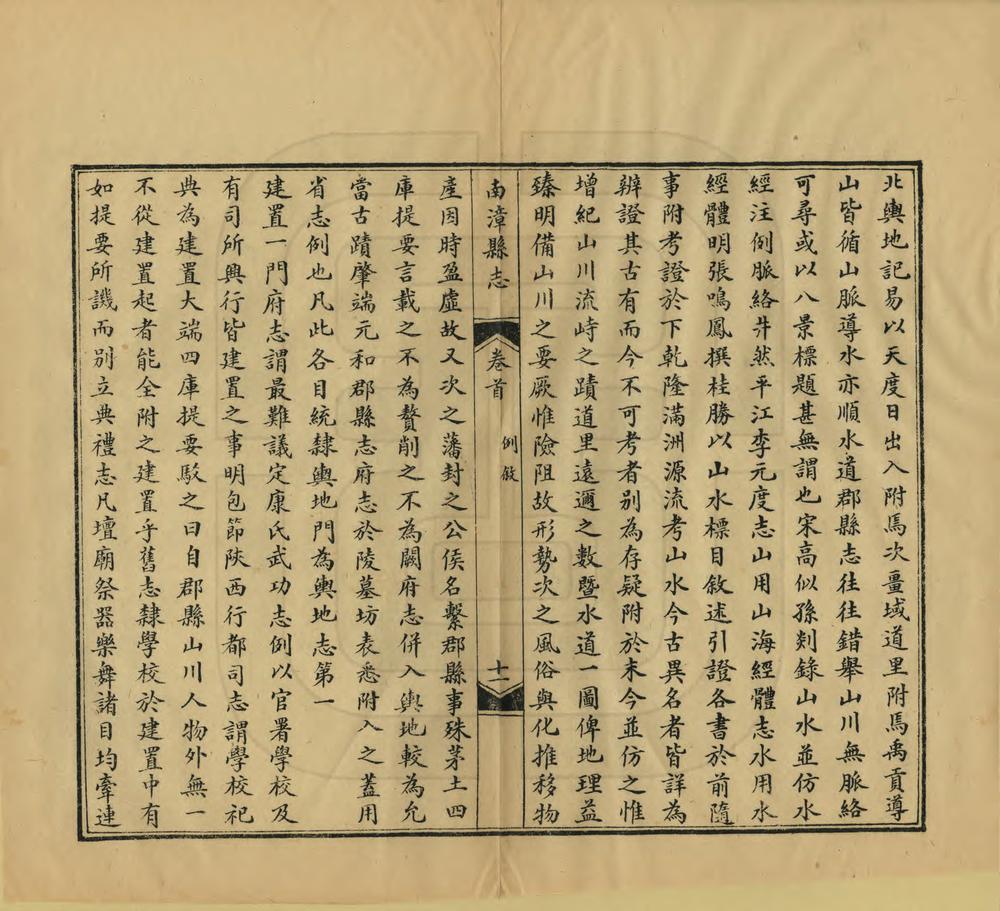 北輿地記易以天度日出入附焉次畺域道里附焉禹貢導
山皆循山脈導水亦順水道郡縣志往往錯舉山川無脈絡
可尋或以八景標題甚無謂也宋高似孫剡錄山水並仿水
經注例脈絡井然平江李元度志山用山海經體志水用水
經體明張鳴鳳撰桂勝以山水標目敘述引證各書於前隨
事附考證於下乾隆滿洲源流考山水今古異名者皆詳為
辨證其古有而今不可考者別為存疑附於末今並仿之惟
增紀山川流峙之蹟道里遠邇之數暨水道一圖俾地理益
臻明備山川之要厥惟險阻故形勢次之風俗與化推移物
南漳縣志
卷首
例敘
十一
產因時盈虛故又次之藩封之公侯名繫郡縣事殊茅土四
庫提要言載之不為贅削之不為闕府志併入輿地較為允
當古蹟肇端元和郡縣志府志於陵墓坊表悉附入之蓋用
省志例也凡此各目統隸輿地門為輿地志第一
建置一門府志謂最難議定康氏武功志例以官署學校及
有司所興行皆建置之事明包節陝西行都司志謂學校祀
典為建置大端四庫提要駁之曰自郡縣山川人物外無一
不從建置起者能全附之建置乎舊志隸學校於建置中有
如提要所譏而別立典禮志凡壇廟祭器樂舞諸目均牽連